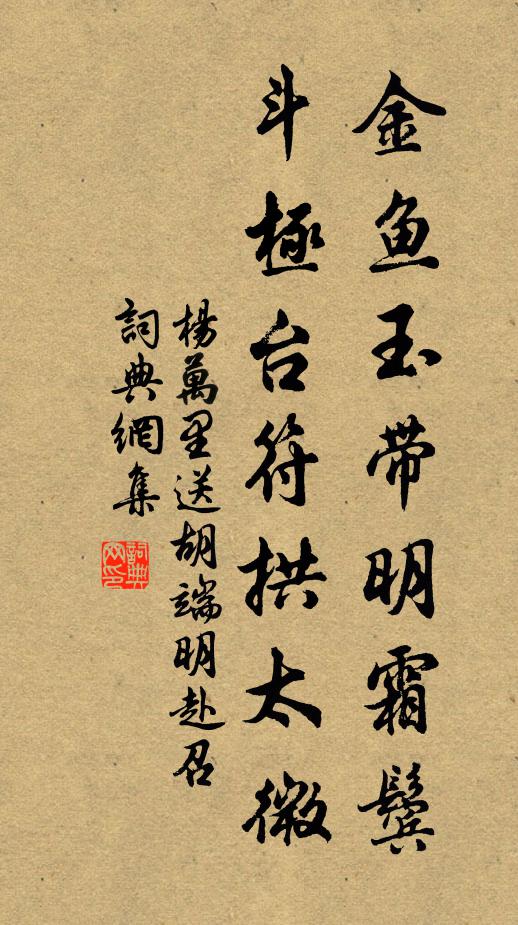 金鱼玉带明霜鬓
斗極台符拱太微
楊萬里送胡端明赴召
詞典網集
詞典
网印